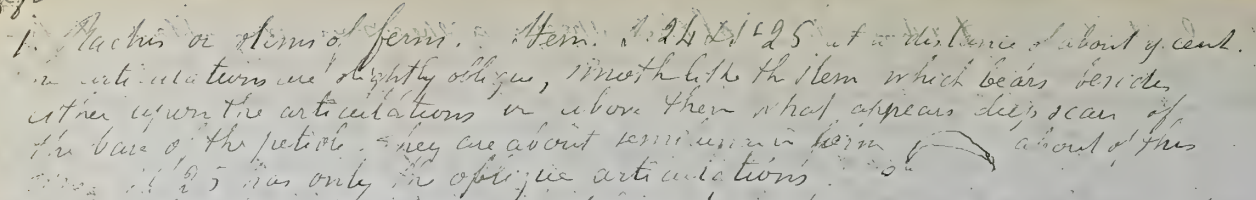 1. Rachis or stems of ferns. Item. 24 & 25 at a distance of about 4 cent.
articulations are slightly oblique, smooth like the stem which bears besides
either upon the articulations or above them what appears deep scars of
the base of the petiole. They are about semilunar in form about of this
25 has only the oblique articulations.